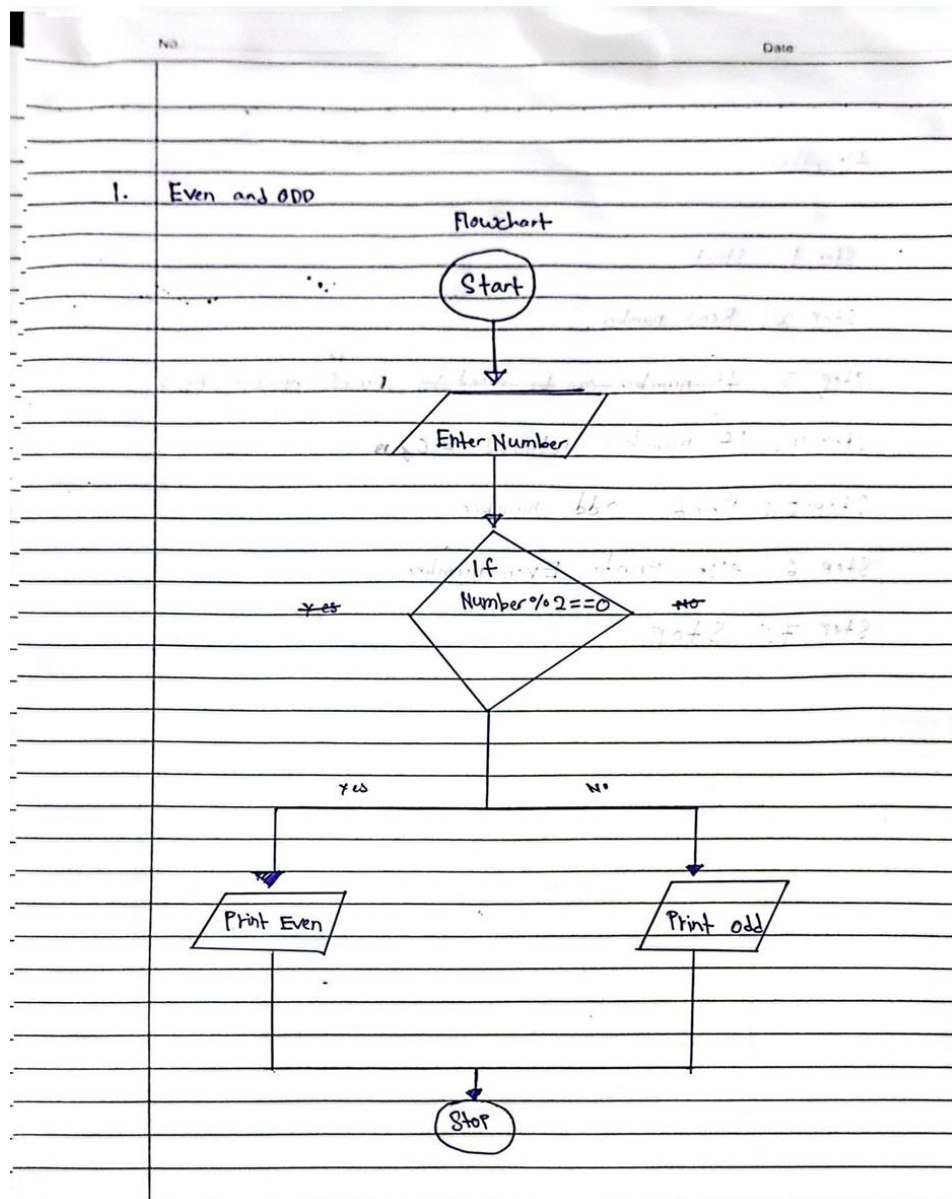 No.
Date
1. Even and ODD
Flowchart
Start
Enter Number
If
Number % 2 == 0
Yes
NO
Yes
No
Print Even
Print odd
Stop